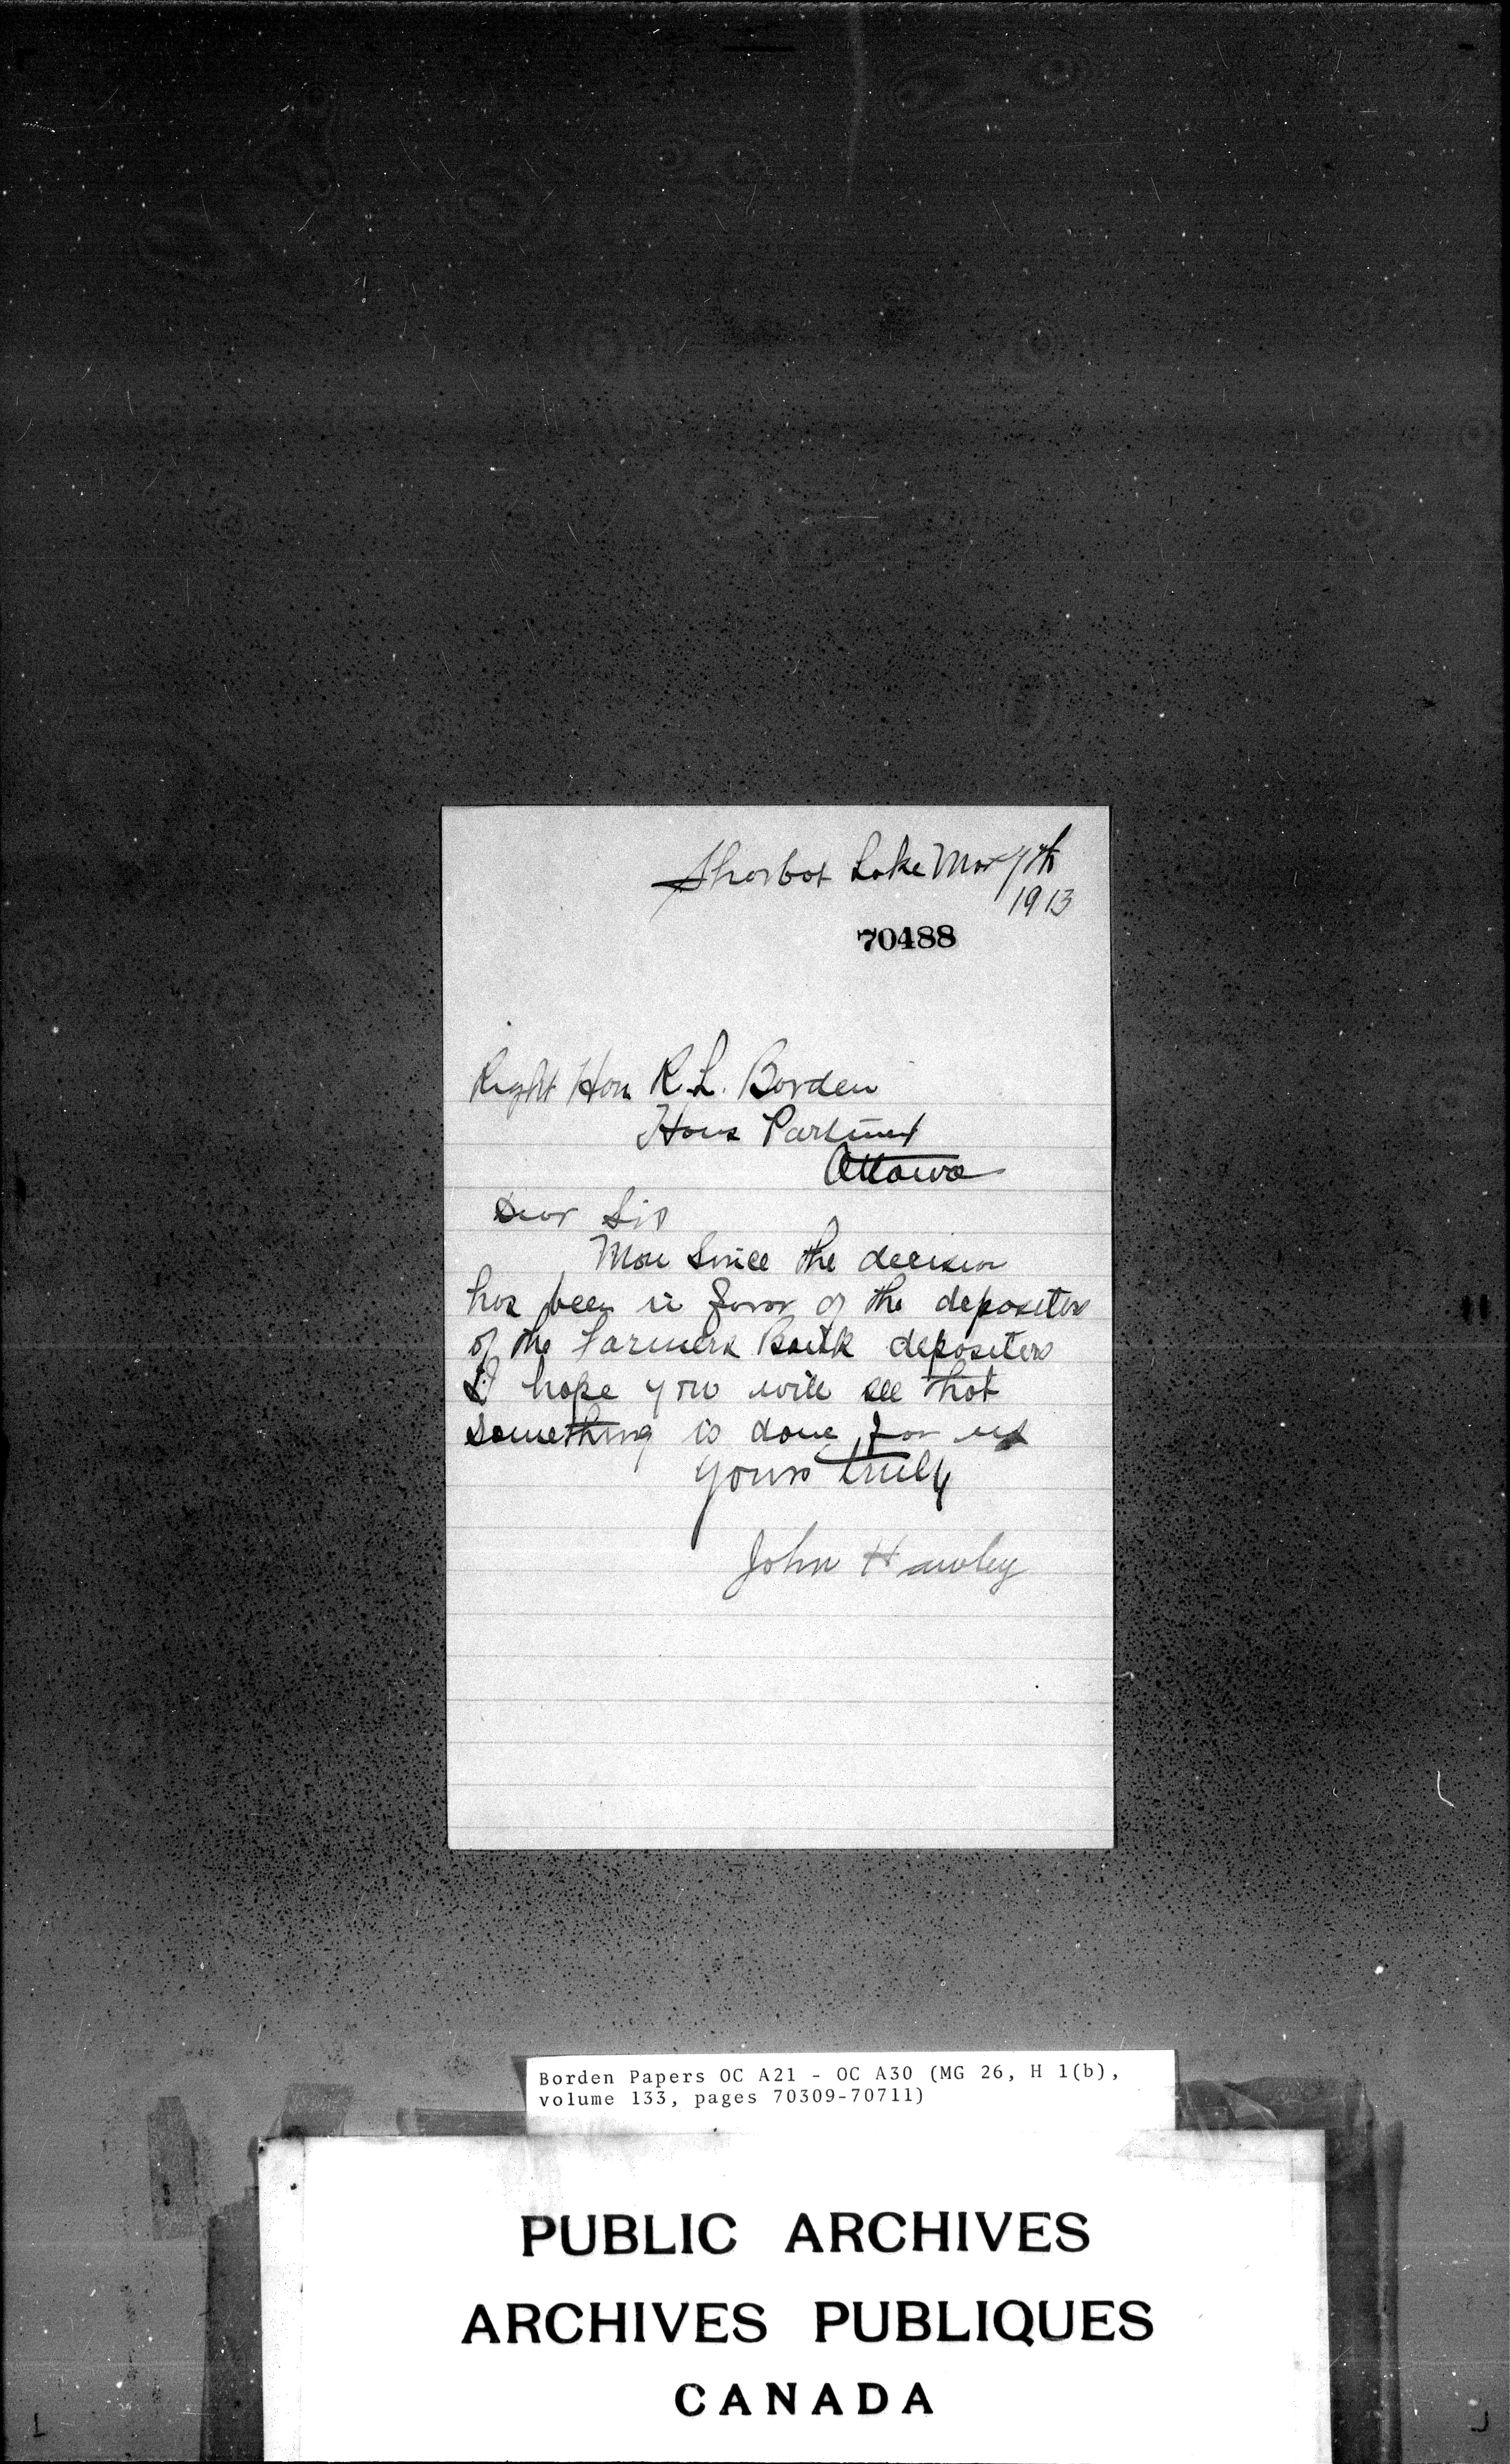 Sharbot Lake Mar 7th
1913
70488
Right Hon R.L. Borden
Hous Parliment
Ottawa
Dear Sir
Now Since the decision
has been in favor of the depositors
of the Farmers Bank depositers
I hope you will see that
something is done for us
yours truly
John Hawley
Borden Papers OC A21 - OC A30 (MG 26, H 1(b),
volume 133, pages 70309-70711)
PUBLIC ARCHIVES
ARCHIVES PUBLIQUES
CANADA